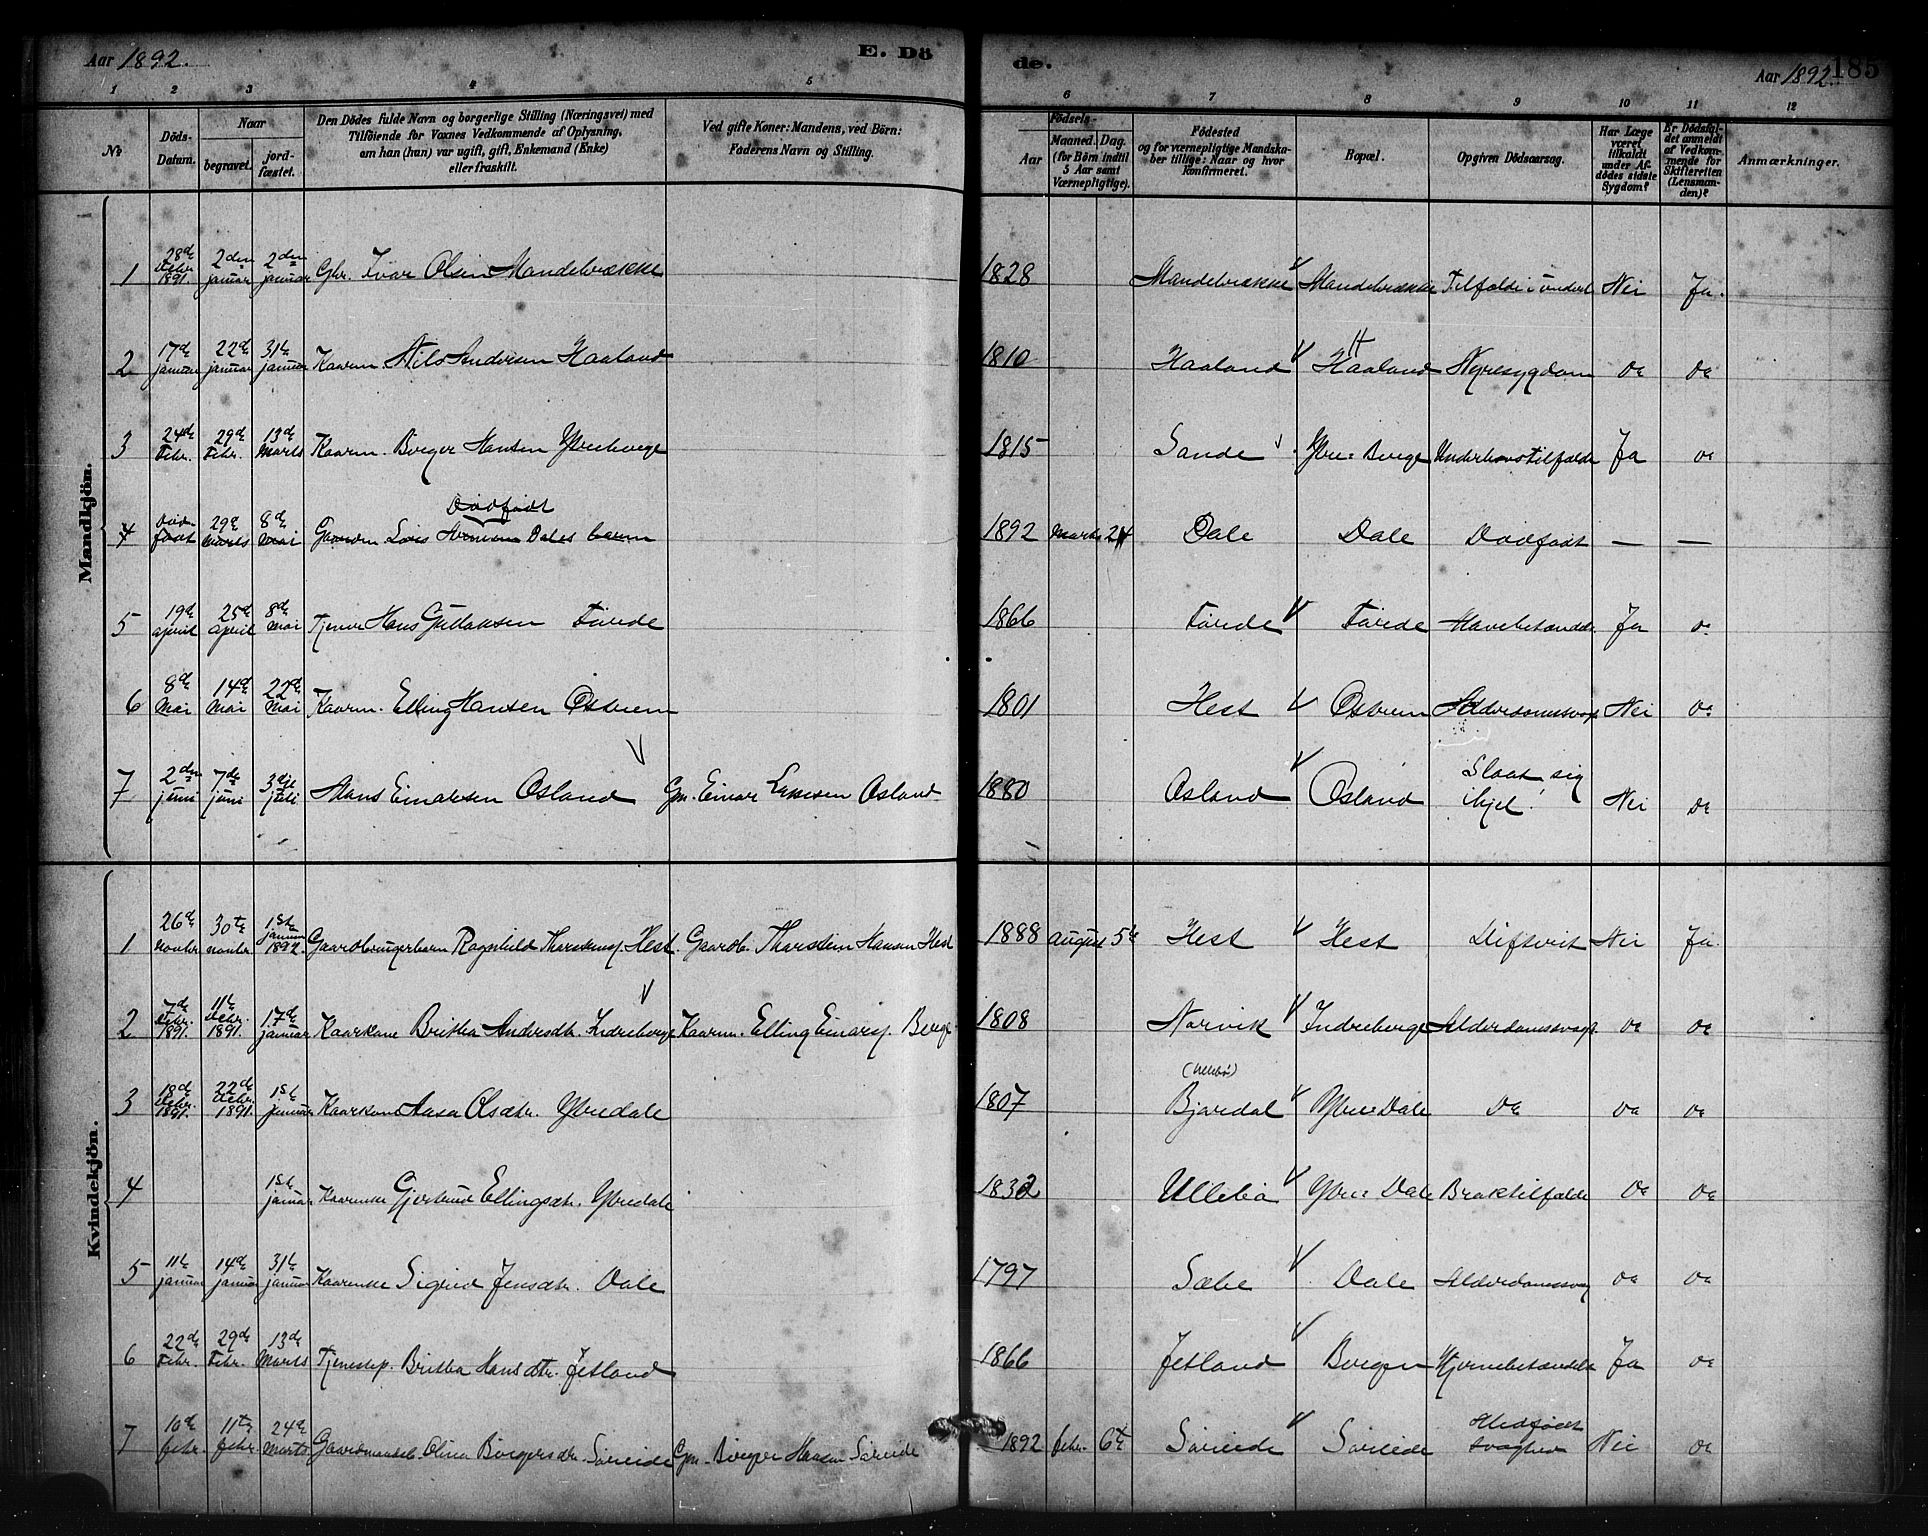 Aar 1892.
E. Dö
de.
Aar 1892.
185
1 2 3 4 5
6 7 8 9 10 11 12
No
Döds-Datum.
Naar
begravet.
jord-fæstet.
Den Dödes fulde Navn og borgerlige Stilling (Næringsvei) med
Tilföiende for Voxnes Vedkommende af Oplysning,
om han (hun) var ugift, gift, Enkemand (Enke)
eller fraskilt.
Ved gifte Koner: Mandens, ved Börn:
Faderens Navn og Stilling.
Födsels-
Aar
Maaned. Dag.
(for Börn indtil
5 Aar samt
Værnepligtige).
Födested
og for værnepligtige Mandska-
ber tillige: Naar og hvor
konfirmeret.
Bopæl.
Opgiven Dödsaarsag.
Har Læge
været
tilkaldt
under Af-
dödes sidste
Sygdom?
Er Dödsfal-
det anmeldt
af Vedkom-
mende for
Skifteretten
(Lensman-
den)?
Anmærkninger.
Mandkjön.
1 28de Debr. 1891. 2den januar 2den januar Gbr. Ivar Olsen Mandebrække 1828 Mandebrække Mandebrække Nei Ja.
2 17de januar 22de januar 31te januar Kaarm. Nils Andersen Haaland 1810 Haaland Haaland Nyresygdom Do Do
3 24de Febr. 29de Febr. 13de Marts Kaarm. Birger Hansen Ytreberge 1815 Sande Ytre Berge Underlivstilfælde Ja Do
4 Död-födt 29de Marts 8de Mai Gaardm. Dales barn Dödfödt 1892 Marts 24 Dale Dale Dödfödt — —
5 19de april 25de april 8de Mai Tjener Hans Gullaksen Förde 1866 Förde Förde Ja Do
6 8de Mai 14de Mai 22de Mai Kaarm. Elling Hansen Östrem 1801 Hest Östrem Alderdomssvag. Nei Do
7 2den juni 7de juni 3die juli Hans Einarsen Osland Gm. Einar Larsen Osland 1880 Osland Osland Slaat sig ihjel! Nei Do
Kvindekjön.
1 26de novbr 30te novbr. 1ste januar 1892. Gaardbrugerbarn Ragnhild Thorstensd. Hest Gaardb. Thorstein Hansen Hest 1888 august 5te Hest Hest Difterit Nei Ja.
2 7de Debr. 1891. 11te Debr. 1891. 17de januar Kaarkone Britha Andersdtr. Indreberge Kaarm. Elling Einars. Berge 1808 Norvik Indreberge Alderdomssvag. Do Do
3 18de Debr. 1891. 22de Debr. 1891. 1ste januar Kaarkone Aasa Olsdtr. Ytredale 1807 Bjordal Ytre Dale Do Do Do
4 1ste januar Kaarenke Gjertrud Ellingsdtr. Ytredale 1832 Ullebö Ytre Dale Broktilfælde Do Do
5 11te januar 14de januar 31te januar Kaarenke Sigrid Jensdtr. Dale 1797 Sæbe Dale Alderdomssvag Do Do
6 22de Febr. 29de Febr. 13de Marts Tjenestep. Britha Hansdtr. Jetland 1866 Jetland Bergen Hjernebetændelse Ja Do
7 10de febr. 11te febr. 24de Marts Gaardmandsb. Olina Birgersdtr. Söreide Gm. Birger Hansen Söreide 1892 febr. 6te Söreide Söreide Medfödt svaghed Nei Do